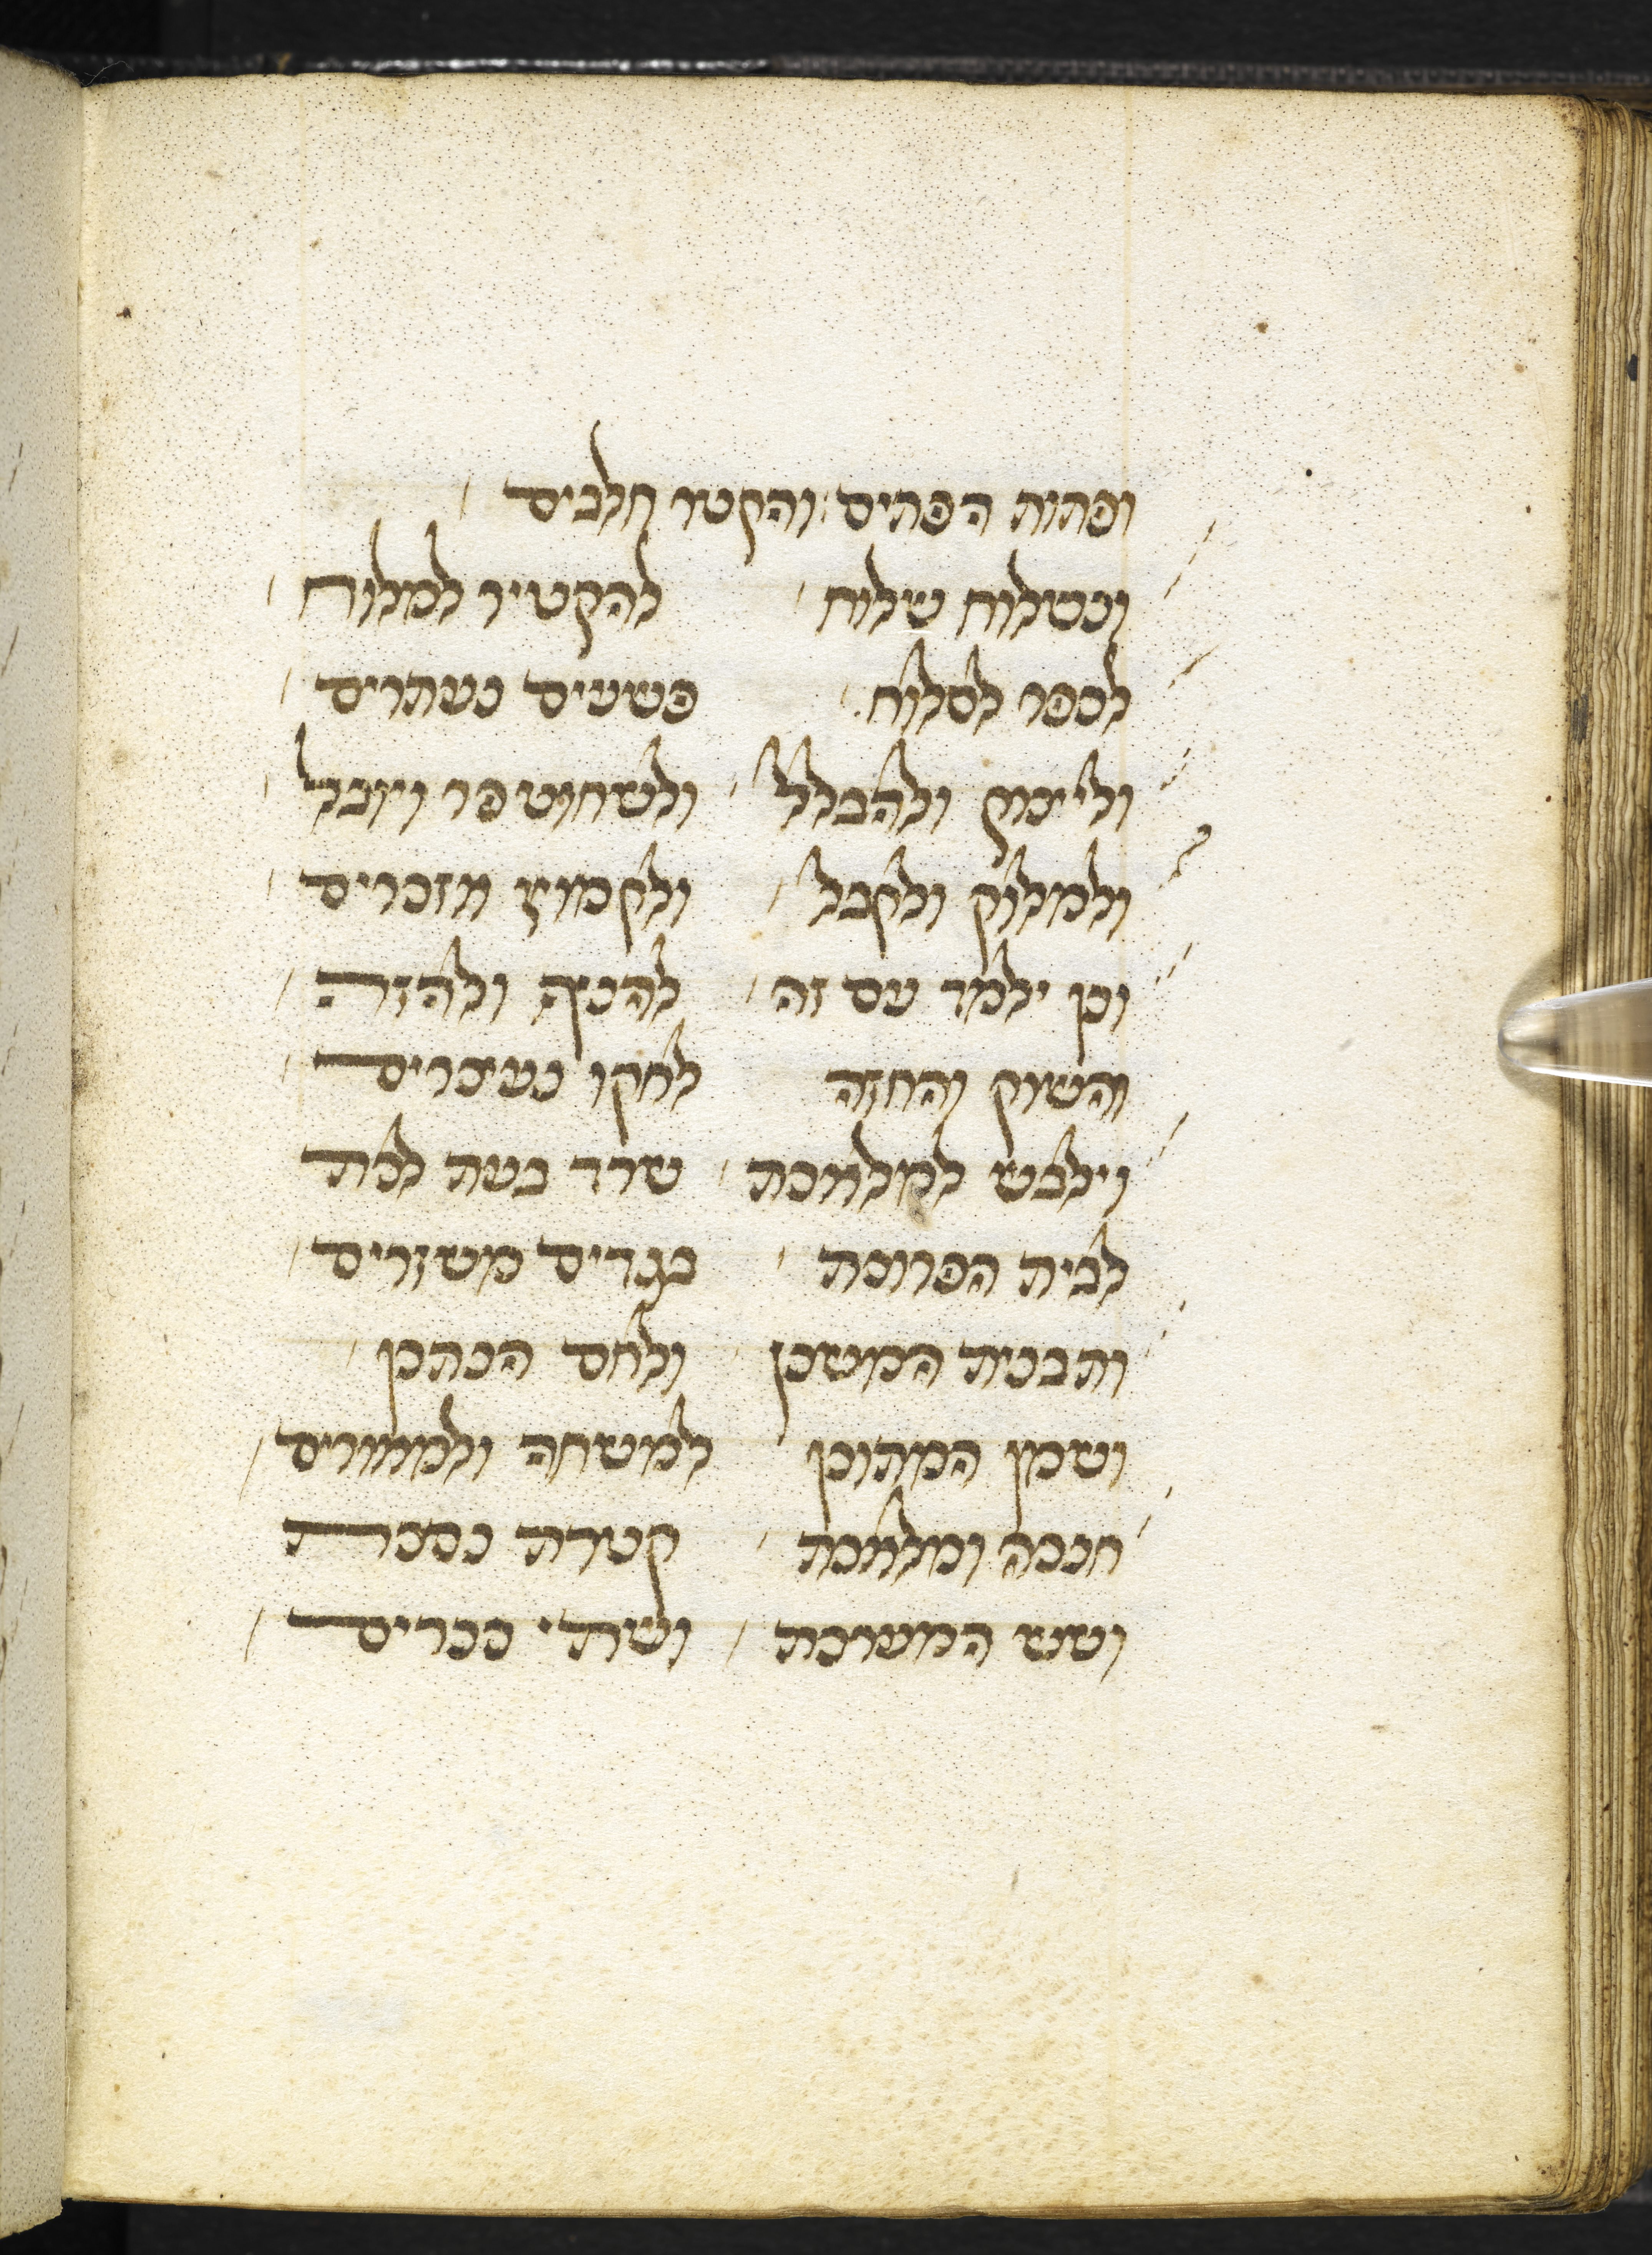 ופתות הפתים והקטר חלבים
וכשלוח שלוח להקטיר למלוח
לכפר לסלוח פשעים כעתרים
וליצוק ולהבלל ולשחוט פר ויובל
ולמלוק ולקבל ולקמוץ אזכרים
וכן ילמד עם זה להניף ולהזה
והשוק והחזה לחקו כעיקרים
וילבש למלאכת שרד בעת לכת
לבית הפרוכת בגדים משזרים
ותבנית המשכן ולחם הכתכן
ושמן המתוכן למשחה ולמאורים
חנכה ומלאכת קטרת כסכרת
ושש המערכת ושתי ככרים